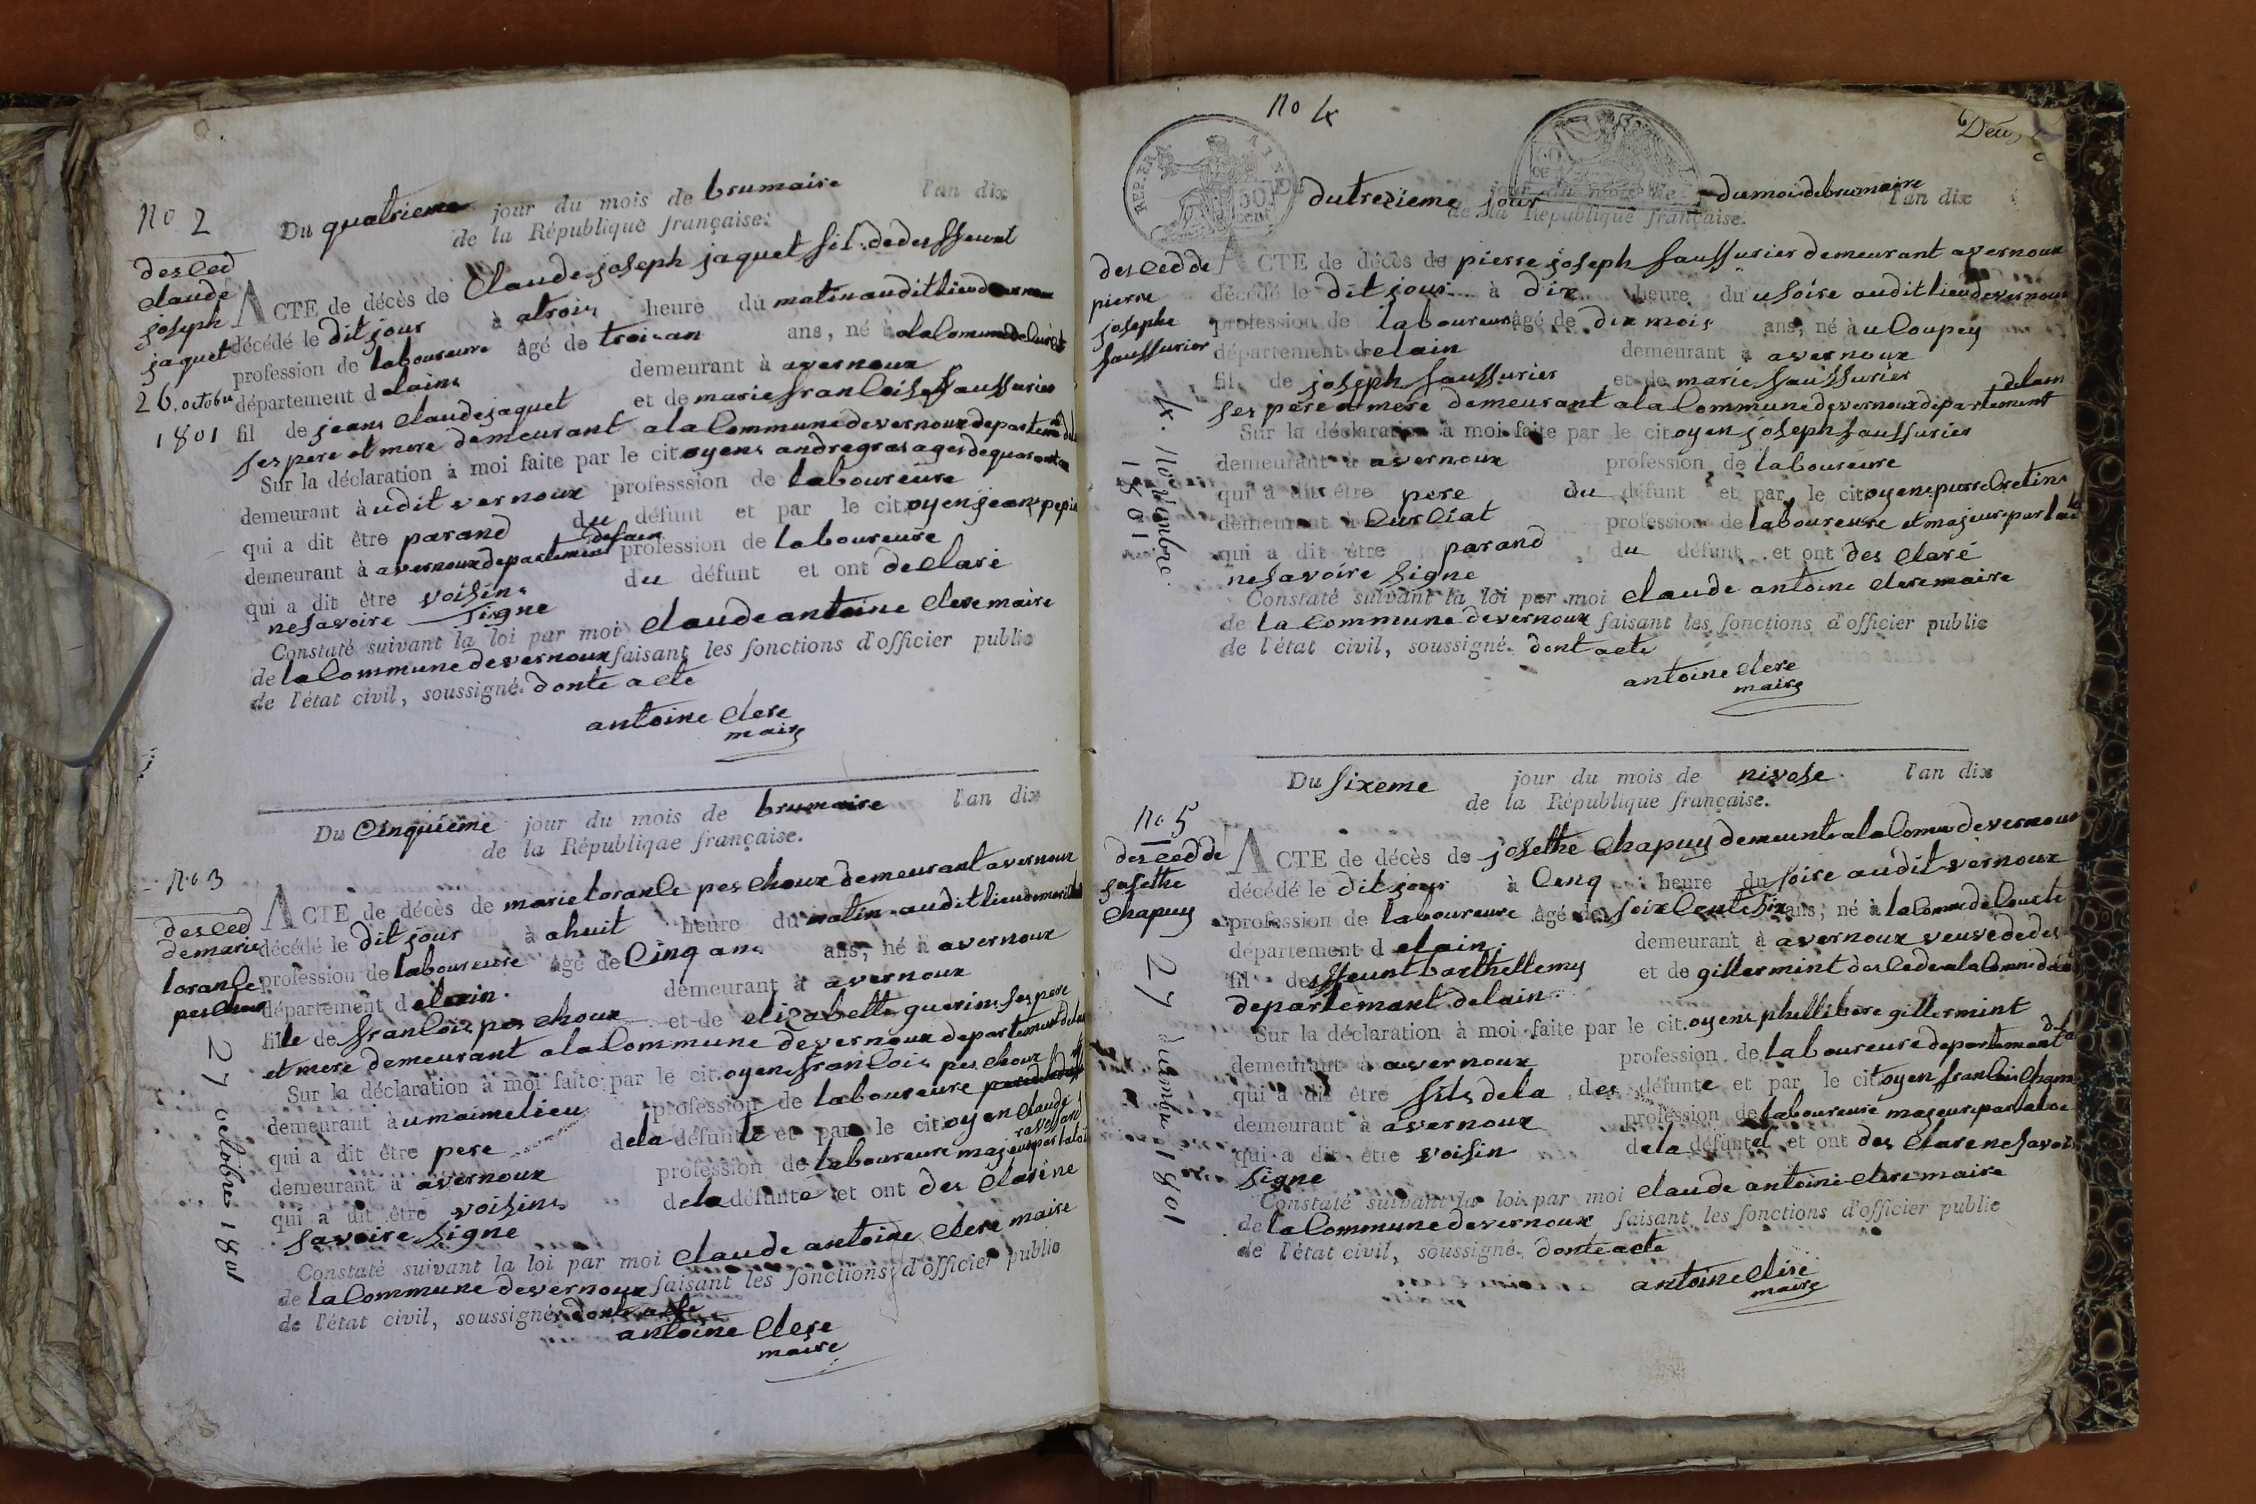 no 2
desced
claude
joseph
jaquet
26. octobre
1801
Du quatrieme jour du mois de brumaire l'an dix
de la République française.
ACTE de décès de Claude joseph jaquet
décédé le dit jour à atrois heure du matin audit lieu
profession de laboureure âgé de trois an ans, né à
département delains demeurant à avernoux
fil de jeans claude jaquet et de marie francoise faussurier
ses pere et mere demeurant ala Commune devernoux
Sur la déclaration à moi faite par le citoyens andre gras ages de
demeurant à audit vernoux professsion de laboureure
qui a dit être parand du défunt et par le citoyen jean pepin
demeurant à avernoux departement delain profession de laboureure
qui a dit être voisins du défunt et ont declaré
nesavoire signe
Constaté suivant la loi par moi claude antoine clere maire
de la Commune devernoux faisant les fonctions d'officier public
de l'état civil, soussigné. donte acte
antoine clere
maire
no 3
desced
demarie
lorance
peschoux
27 octobre 1801
Du Cinquieme jour du mois de brumaire l'an dix
de la République française.
ACTE de décès de marie lorance peschoux demeurant avernoux
décédé le dit jour à ahuit heure du matin audit lieu
profession de laboureure âgé de Cinq ans ans, né à avernoux
département delain. demeurant à avernoux
fille de francois peschoux et de elizabette guerin ses pere
et mere demeurant ala Commune devernoux departement
Sur la déclaration à moi faite par le citoyen francois peschoux
demeurant à umaimelieu profession de laboureure
qui a dit être pere dela défunte et par le citoyen claude
demeurant à avernoux profession de laboureure majeure par laloi
qui a dit être voisins dela défunte et ont des clarene
savoire signe
Constaté suivant la loi par moi claude antoine clere maire
de la Commune devernoux faisant les fonctions d'officier public
de l'état civil, soussigné dont acte
antoine clere
maire
no 4
Deux
dutrezieme jour dumoi debrumaire l'an dix
de la République française.
desced de
pierre
josephe
faussurier
4. Novembre.
1801
ACTE de décès de pierre joseph faussurier demeurant avernoux
décédé le dit jour à dix heure du usoire audit lieu devernoux
profession de laboureur âgé de dix mois ans, né à u Coupey
département delain demeurant à avernoux
fil de joseph faussurier et de marie faussurier
ses pere et mere demeurant ala Commune devernoux departement delain
Sur la déclaration à moi faite par le citoyen joseph faussurier
demeurant à avernoux profession de laboureure
qui a dit être pere du défunt et par le citoyens pierre Cretins
demeurant à Curciat profession de laboureure et majeure par
qui a dit être parand du défunt et ont des claré
nesavoire signe
Constaté suivant la loi par moi claude antoine clere maire
de la Commune devernoux faisant les fonctions d'officier public
de l'état civil, soussigné. dont acte
antoine clere
maire
no 5
desced de
josethe
chapuy
27 décembre 1801
Du sixeme jour du mois de nivose l'an dix
de la République française.
ACTE de décès de josethe chapuy demeurante ala Comune devernoux
décédé le dit jour à Cinq heure du soire audit vernoux
profession de laboureure âgé de ans, né à la Comune de
département delain. demeurant à avernoux veuve dedes
fil de ffeunt barthellemy et de gillermint
departemant delain.
Sur la déclaration à moi faite par le citoyens phillibere gillermint
demeurant à avernoux profession de laboureure departemant
qui a dit être fils dela des défunte et par le citoyen francois
demeurant à avernoux profession de laboureure majeure par laloi
qui a dit être voisin dela défunte et ont des clare nesavoi
signe
Constaté suivant la loi par moi claude antoine clere maire
de la Commune devernoux faisant les fonctions d'officier public
de l'état civil, soussigné. donte acte
antoine clere
maire